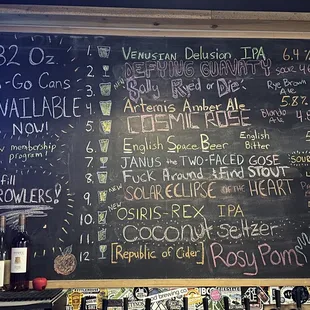 32 Oz.
To-Go Cans
AVAILABLE
NOW!
new membership
program!
GROWLERS!
1. Venusian Delusion IPA 6.4%
2. DEFYING GUAVATY sour
3. Sally Ryed or Die Rye Brown Ale
4. Artemis Amber Ale 5.8%
5. COSMIC ROSÉ Blonde Ale
6. English Space Beer English Bitter
7. JANUS THE TWO-FACED GOSE SOUR
8. Fuck Around & Find STOUT
9. NEW SOLAR ECLIPSE OF THE HEART
10. NEW OSIRIS-REX IPA
11. Coconut Seltzer
12. [Republic of Cider] Rosy Pom